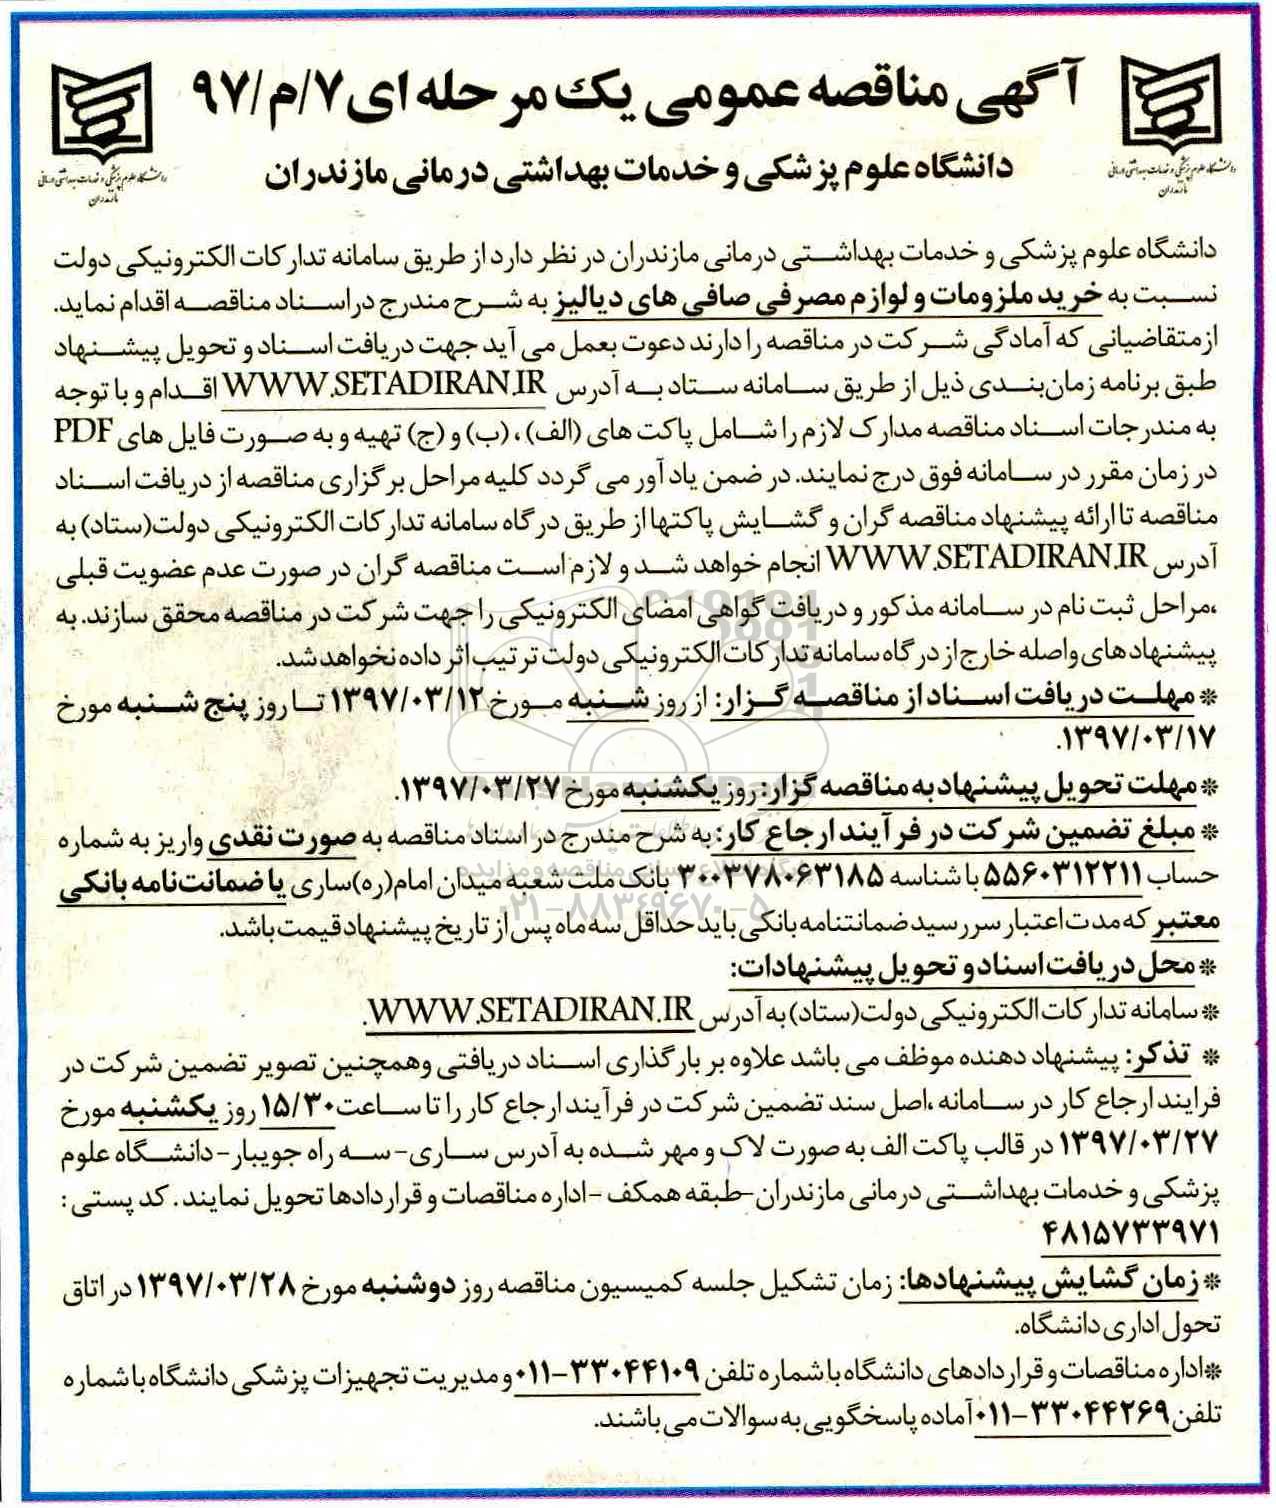 آگهی مناقصه عمومی یک مرحله ای ۷/م/۹۷
دانشگاه علوم پزشکی و خدمات بهداشتی درمانی مازندران
دانشگاه علوم پزشکی و خدمات بهداشتی درمانی
مازندران
دانشگاه علوم پزشکی و خدمات بهداشتی درمانی
مازندران
دانشگاه علوم پزشکی و خدمات بهداشتی درمانی مازندران در نظر دارد از طریق سامانه تدارکات الکترونیکی دولت
نسبت به خرید ملزومات و لوازم مصرفی صافی های دیالیز به شرح مندرج در اسناد مناقصه اقدام نماید.
از متقاضیانی که آمادگی شرکت در مناقصه را دارند دعوت بعمل می آید جهت دریافت اسناد و تحویل پیشنهاد
طبق برنامه زمان‌بندی ذیل از طریق سامانه ستاد به آدرس WWW.SETADIRAN.IR اقدام و با توجه
به مندرجات اسناد مناقصه مدارک لازم را شامل پاکت های (الف) ، (ب) و (ج) تهیه و به صورت فایل های PDF
در زمان مقرر در سامانه فوق درج نمایند. در ضمن یاد آور می گردد کلیه مراحل برگزاری مناقصه از دریافت اسناد
مناقصه تا ارائه پیشنهاد مناقصه گران و گشایش پاکتها از طریق درگاه سامانه تدارکات الکترونیکی دولت(ستاد) به
آدرس WWW.SETADIRAN.IR انجام خواهد شد و لازم است مناقصه گران در صورت عدم عضویت قبلی
،مراحل ثبت نام در سامانه مذکور و دریافت گواهی امضای الکترونیکی را جهت شرکت در مناقصه محقق سازند. به
پیشنهادهای واصله خارج از درگاه سامانه تدارکات الکترونیکی دولت ترتیب اثر داده نخواهد شد.
* مهلت دریافت اسناد از مناقصه گزار: از روز شنبه مورخ ۱۳۹۷/۰۳/۱۲ تا روز پنج شنبه مورخ
۱۳۹۷/۰۳/۱۷.
* مهلت تحویل پیشنهاد به مناقصه گزار: روز یکشنبه مورخ ۱۳۹۷/۰۳/۲۷.
* مبلغ تضمین شرکت در فرآیند ارجاع کار: به شرح مندرج در اسناد مناقصه به صورت نقدی واریز به شماره
حساب ۵۵۶۰۳۱۲۲۱۱ با شناسه ۳۰۰۳۷۸۰۶۳۱۸۵ بانک ملت شعبه میدان امام(ره)ساری یا ضمانت‌نامه بانکی
معتبر که مدت اعتبار سررسید ضمانتنامه بانکی باید حداقل سه ماه پس از تاریخ پیشنهاد قیمت باشد.
۰۲۱-۸۸۳۴۹۶۷۰-۵
* محل دریافت اسناد و تحویل پیشنهادات:
* سامانه تدارکات الکترونیکی دولت(ستاد) به آدرس WWW.SETADIRAN.IR.
* تذکر: پیشنهاد دهنده موظف می باشد علاوه بر بارگذاری اسناد دریافتی وهمچنین تصویر تضمین شرکت در
فرایند ارجاع کار در سامانه ،اصل سند تضمین شرکت در فرآیند ارجاع کار را تا ساعت ۱۵/۳۰ روز یکشنبه مورخ
۱۳۹۷/۰۳/۲۷ در قالب پاکت الف به صورت لاک و مهر شده به آدرس ساری- سه راه جویبار- دانشگاه علوم
پزشکی و خدمات بهداشتی درمانی مازندران-طبقه همکف -اداره مناقصات و قراردادها تحویل نمایند. کد پستی :
۴۸۱۵۷۳۳۹۷۱
* زمان گشایش پیشنهادها: زمان تشکیل جلسه کمیسیون مناقصه روز دوشنبه مورخ ۱۳۹۷/۰۳/۲۸ در اتاق
تحول اداری دانشگاه.
*اداره مناقصات و قراردادهای دانشگاه با شماره تلفن ۳۳۰۴۴۱۰۹-۰۱۱ و مدیریت تجهیزات پزشکی دانشگاه با شماره
تلفن ۳۳۰۴۴۲۶۹-۰۱۱ آماده پاسخگویی به سوالات می باشند.